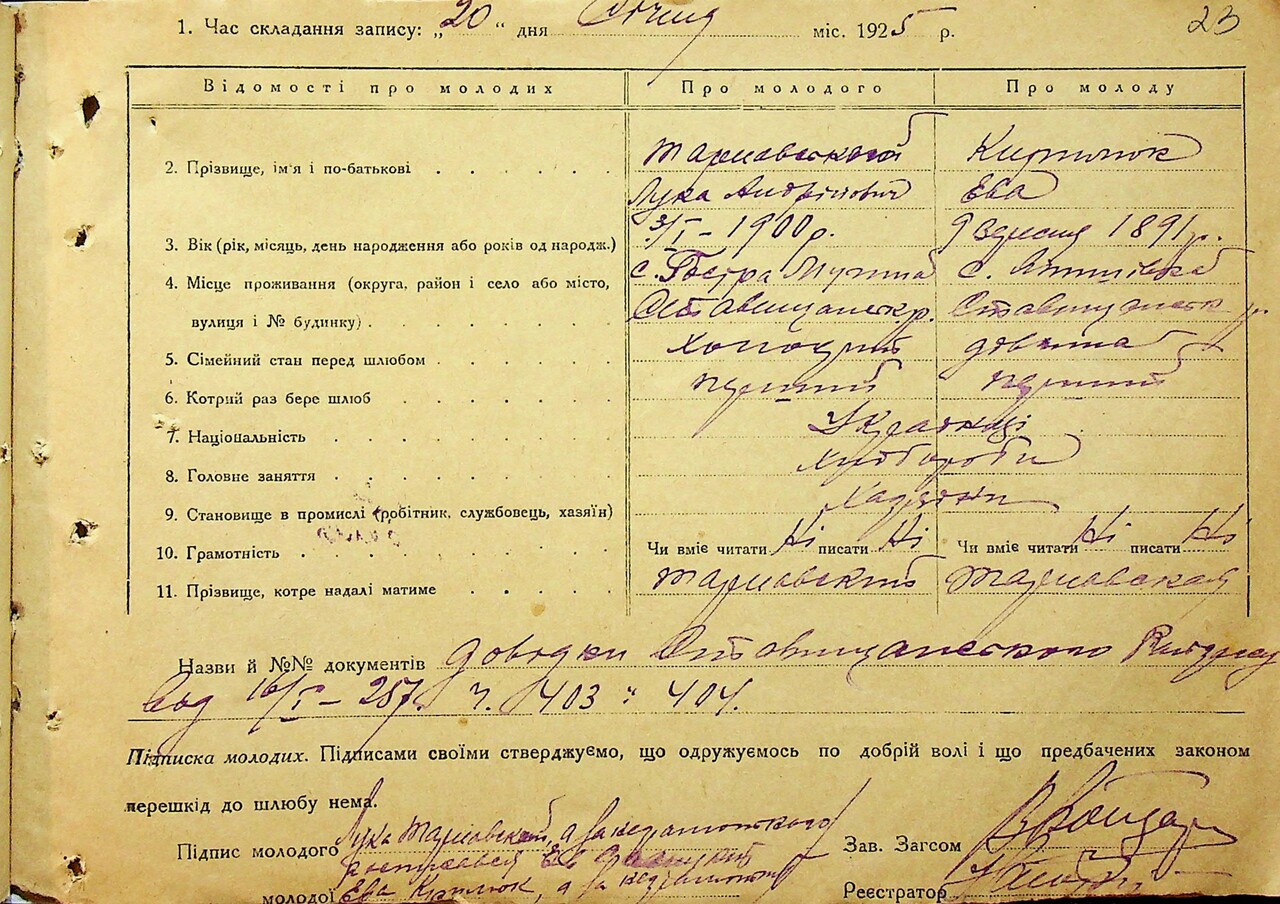 23
1. Час складання запису: „20“ дня Січня міс. 1925 р.
Відомості про молодих Про молодого Про молоду
2. Прізвище, ім'я і по-батькові Тарновський Кирилюк
Лука Андрійович Ева
3. Вік (рік, місяць, день народження або років од народж.) 3/I – 1900 р. 9 вересня 1891 р.
4. Місце проживання (округа, район і село або місто, с. с.
вулиця і № будинку) Ставищанск р. Ставищанск р.
5. Сімейний стан перед шлюбом холостий дівчина
6. Котрий раз бере шлюб перший перший
7. Національність Українці
8. Головне заняття Хлібороби
9. Становище в промислі (робітник, службовець, хазяїн) Хазяїни
10. Грамотність Чи вміє читати Ні писати Ні Чи вміє читати Ні писати Ні
11. Прізвище, котре надалі матиме Тарновский Тарновская
Назви й №№ документів довідки Ставищанского
від 16/I – 25 р. ч. 403 и 404.
Підписка молодих. Підписами своїми стверджуємо, що одружуємось по добрій волі і що предбачених законом
перешкід до шлюбу нема.
Підпис молодого Лука Тарновський, а за неграмотного
расписався
Зав. Загсом
молодої Ева Кирилюк, а за неграмотну
Реєстратор